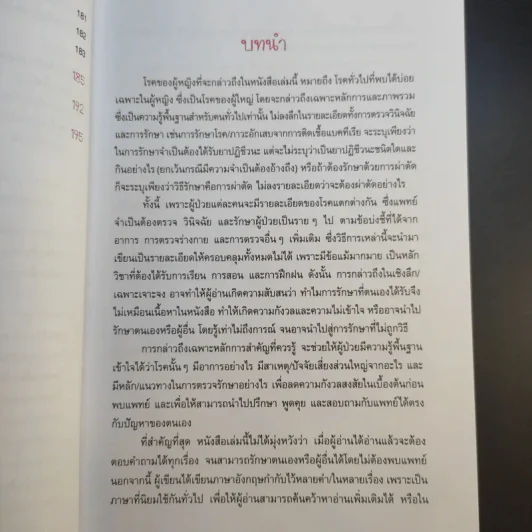 181
182
183
185
192
195
บทนำ
โรคของผู้หญิงที่จะกล่าวถึงในหนังสือเล่มนี้ หมายถึง โรคทั่วไปที่พบได้บ่อย
เฉพาะในผู้หญิง ซึ่งเป็นโรคของผู้ใหญ่ โดยจะกล่าวถึงเฉพาะหลักการและภาพรวม
ซึ่งเป็นความรู้พื้นฐานสำหรับคนทั่วไปเท่านั้น ไม่ลงลึกในรายละเอียดทั้งการตรวจวินิจฉัย
และการรักษา เช่นการรักษาโรค/ภาวะอักเสบจากการติดเชื้อแบคทีเรีย จะระบุเพียงว่า
ในการรักษาจำเป็นต้องได้รับยาปฏิชีวนะ แต่จะไม่ระบุว่าเป็นยาปฏิชีวนะชนิดใดและ
กินอย่างไร (ยกเว้นกรณีมีความจำเป็นต้องอ้างถึง) หรือถ้าต้องรักษาด้วยการผ่าตัด
ก็จะระบุเพียงว่าวิธีรักษาคือการผ่าตัด ไม่ลงรายละเอียดว่าจะต้องผ่าตัดอย่างไร
ทั้งนี้ เพราะผู้ป่วยแต่ละคนจะมีรายละเอียดของโรคแตกต่างกัน ซึ่งแพทย์
จำเป็นต้องตรวจ วินิจฉัย และรักษาผู้ป่วยเป็นราย ๆ ไป ตามข้อบ่งชี้ที่ได้จาก
อาการ การตรวจร่างกาย และการตรวจอื่น ๆ เพิ่มเติม ซึ่งวิธีการเหล่านี้จะนำมา
เขียนเป็นรายละเอียดให้ครอบคลุมทั้งหมดไม่ได้ เพราะมีข้อแม้มากมาย เป็นหลัก
วิชาที่ต้องได้รับการเรียน การสอน และการฝึกฝน ดังนั้น การกล่าวถึงในเชิงลึก/
เฉพาะเจาะจง อาจทำให้ผู้อ่านเกิดความสับสนว่า ทำไมการรักษาที่ตนเองได้รับจึง
ไม่เหมือนเนื้อหาในหนังสือ ทำให้เกิดความกังวลและความไม่เข้าใจ หรืออาจนำไป
รักษาตนเองหรือผู้อื่น โดยรู้เท่าไม่ถึงการณ์ จนอาจนำไปสู่การรักษาที่ไม่ถูกวิธี
การกล่าวถึงเฉพาะหลักการสำคัญที่ควรรู้ จะช่วยให้ผู้ป่วยมีความรู้พื้นฐาน
เข้าใจได้ว่าโรคนั้น ๆ มีอาการอย่างไร มีสาเหตุ/ปัจจัยเสี่ยงส่วนใหญ่จากอะไร และ
มีหลัก/แนวทางในการตรวจรักษาอย่างไร เพื่อลดความกังวลสงสัยในเบื้องต้นก่อน
พบแพทย์ และเพื่อให้สามารถนำไปปรึกษา พูดคุย และสอบถามกับแพทย์ได้ตรง
กับปัญหาของตนเอง
ที่สำคัญที่สุด หนังสือเล่มนี้ไม่ได้มุ่งหวังว่า เมื่อผู้อ่านได้อ่านแล้วจะต้อง
ตอบคำถามได้ทุกเรื่อง จนสามารถรักษาตนเองหรือผู้อื่นได้โดยไม่ต้องพบแพทย์
นอกจากนี้ ผู้เขียนได้เขียนภาษาอังกฤษกำกับไว้หลายคำ/ในหลายเรื่อง เพราะเป็น
ภาษาที่นิยมใช้กันทั่วไป เพื่อให้ผู้อ่านสามารถค้นคว้าหาอ่านเพิ่มเติมได้ หรือใน